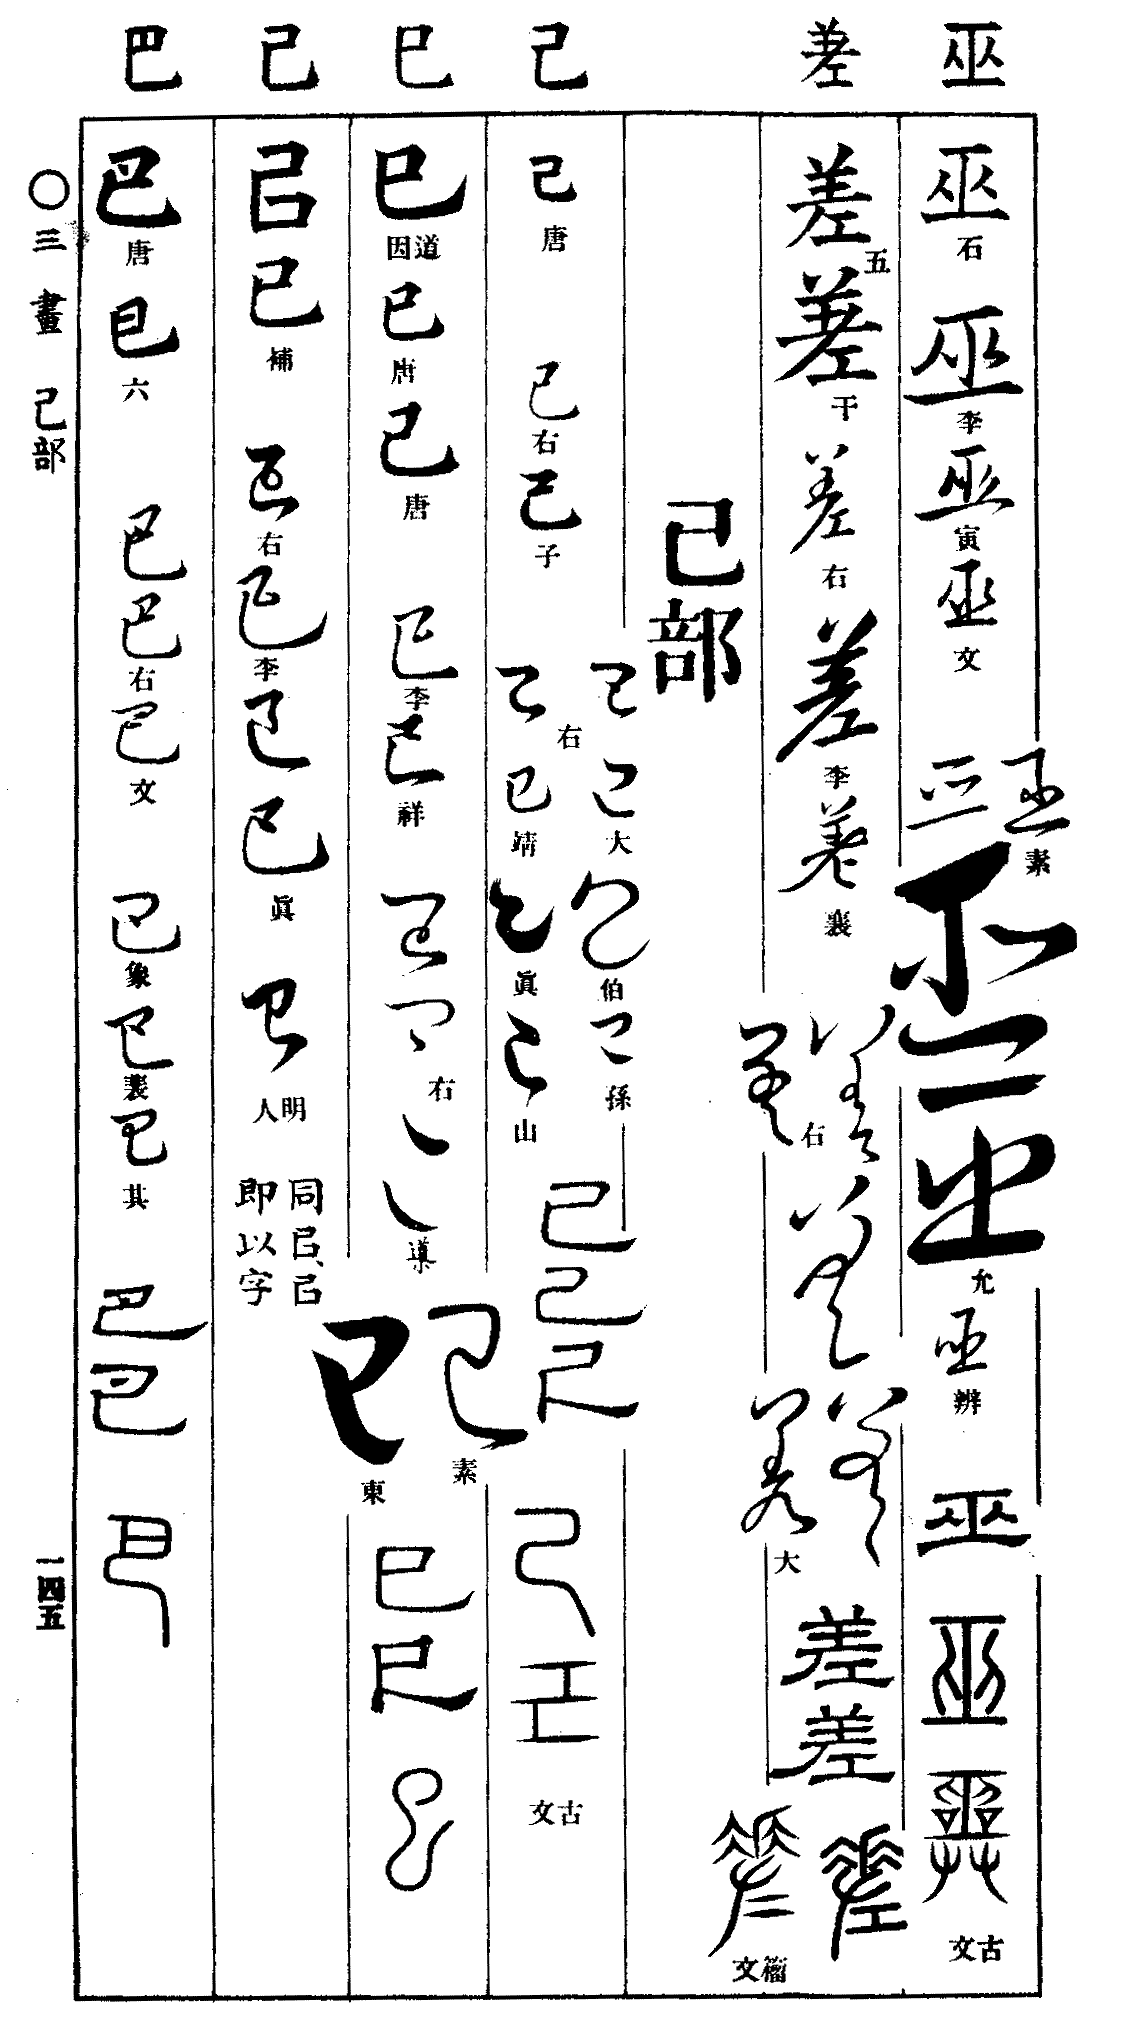 巫 差 己 巳 已 巴
巫 石 巫 李 巫 寅 巫 文 巫 巫 素 巫 巫 允 巫 辨 巫 巫 巫 古文
差 五 差 干 差 右 差 李 差 襄 差 差 右 差 差 差 大 差 差 差 差 籀文
己部
己 唐 己 右 己 子 己 己 右 己 大 己 靖 己 伯 己 眞 己 孫 己 山 己 己 己 己 己 古文
巳 道因 巳 唐 巳 唐 巳 李 巳 祥 巳 巳 右 巳 素 巳 東 巳 巳 巳
㠯 已 補 已 右 已 李 已 已 眞 已 明人
同㠯、㠯
即以字
巴 唐 巴 六 巴 巴 右 巴 文 巴 象 巴 巴 其 巴 巴 巴
〇三畫 己部 一四五